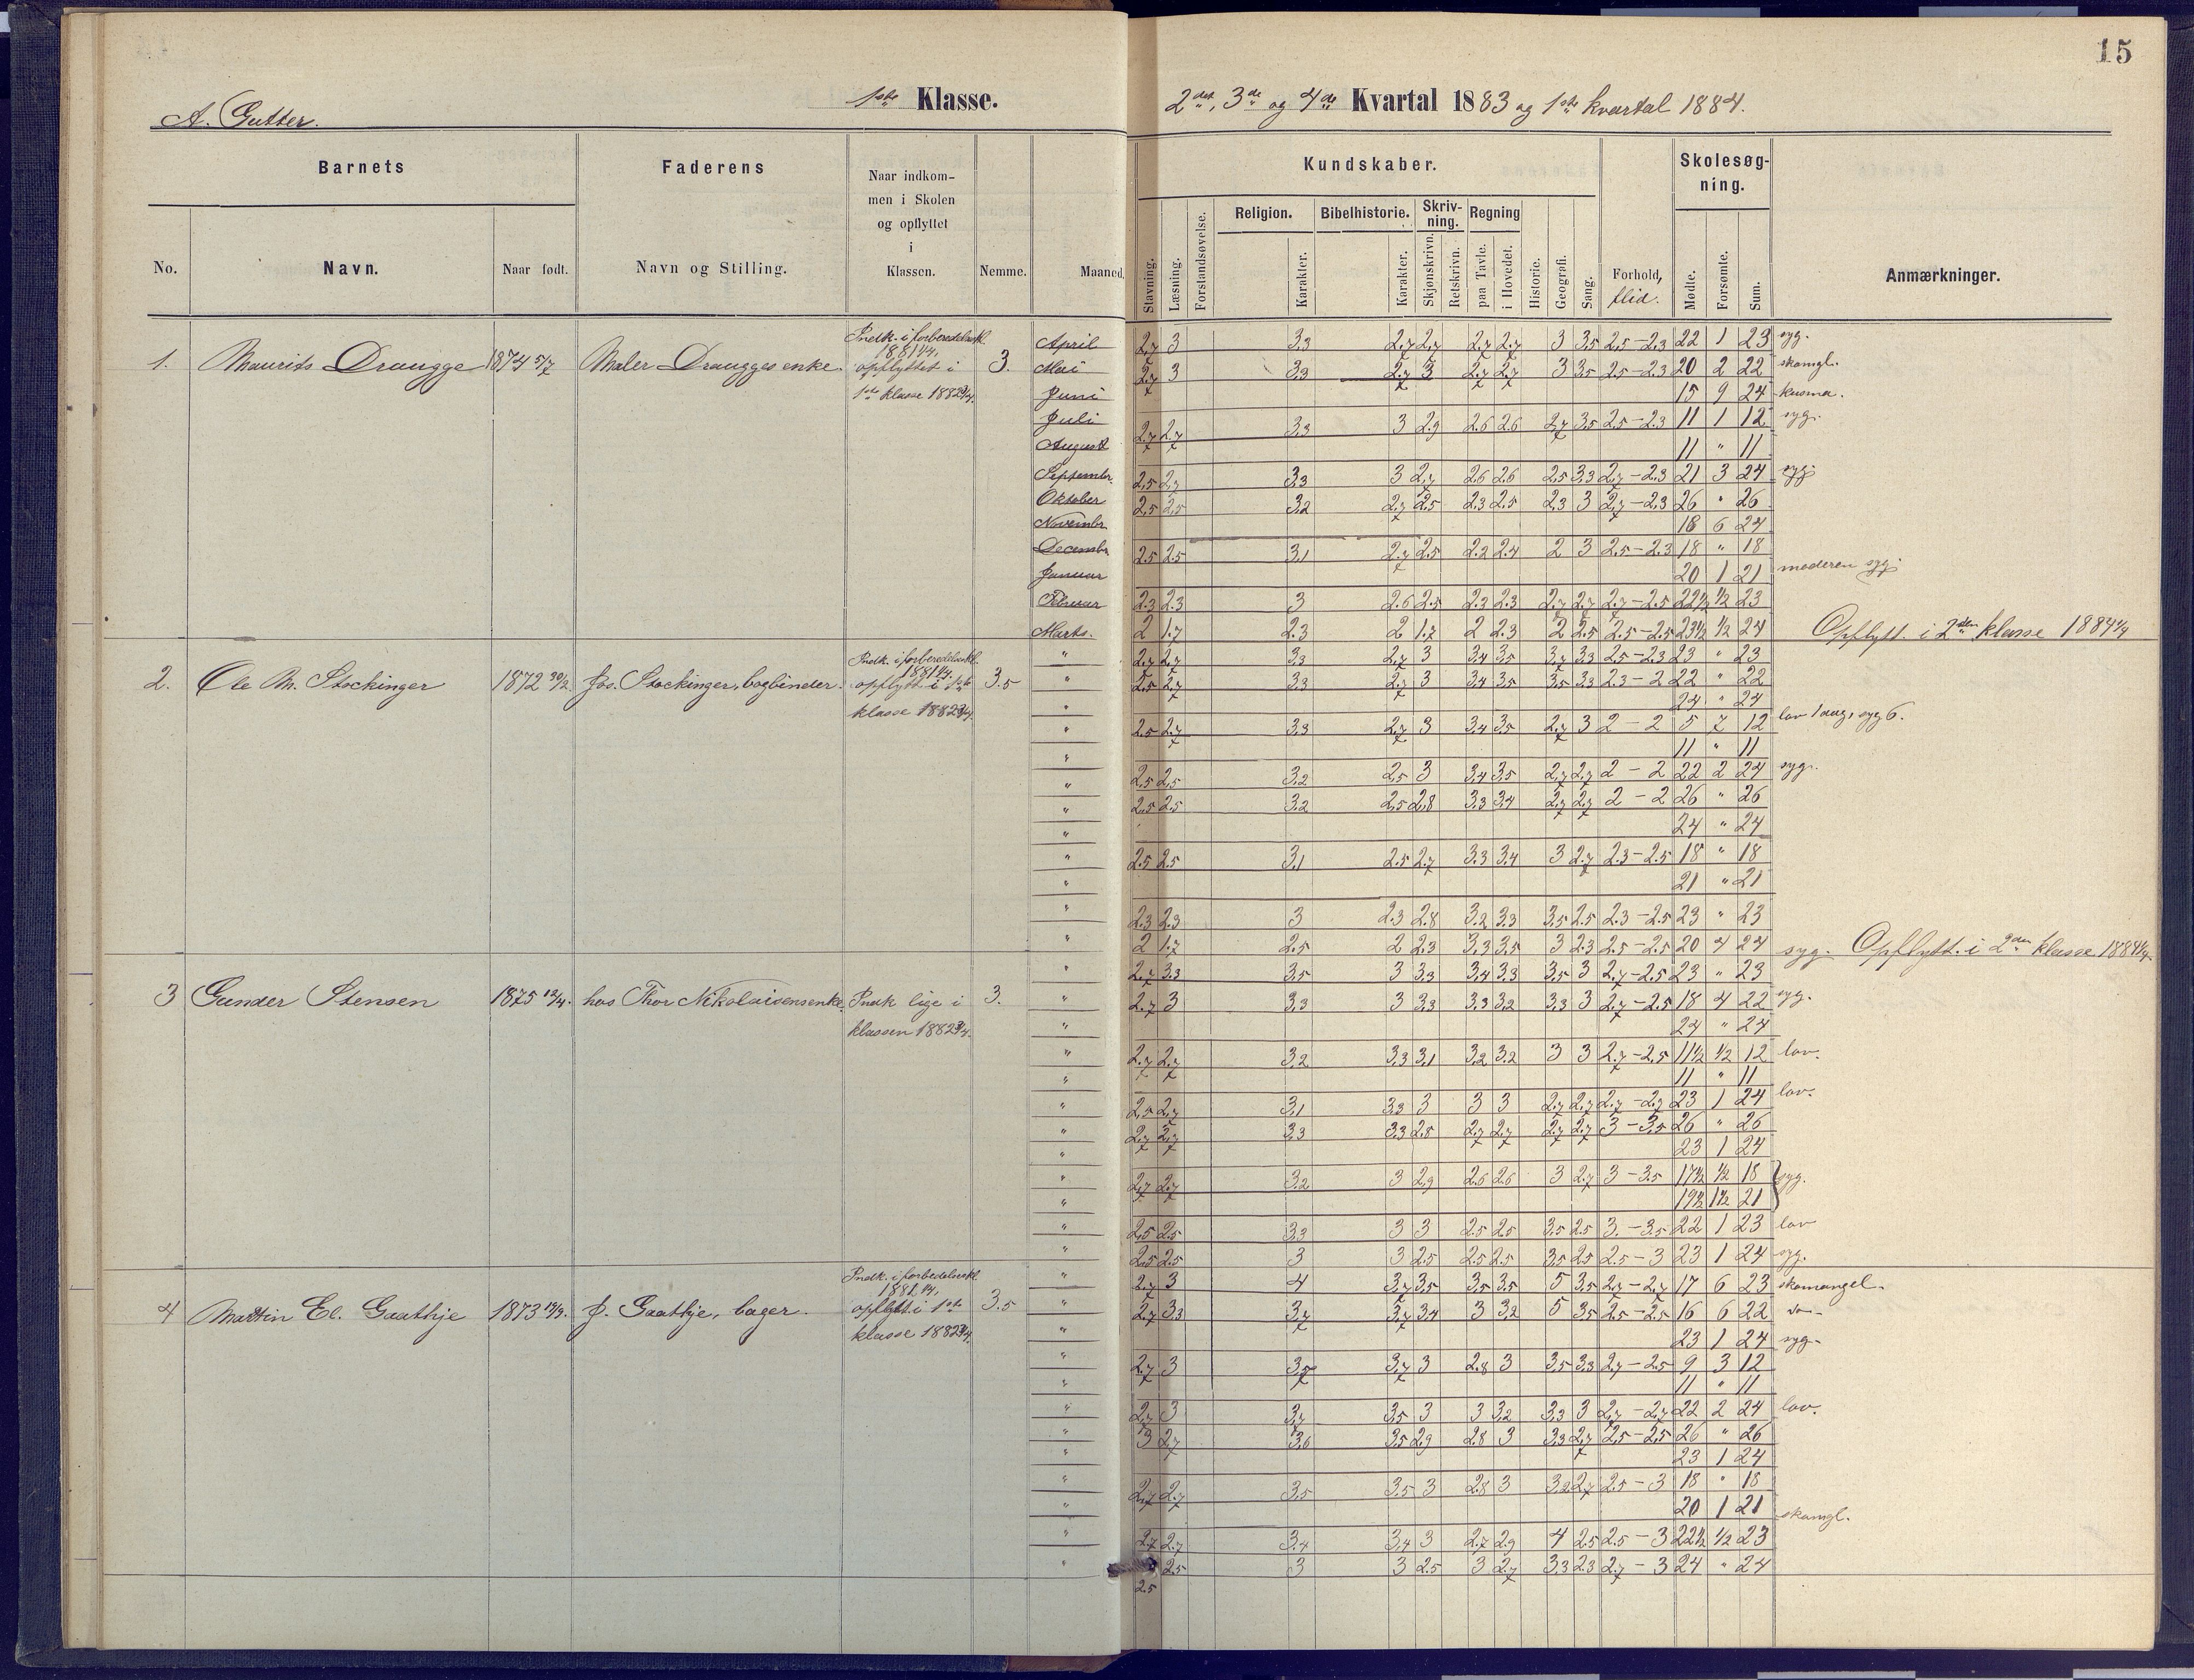 15
1ste Klasse.
2det, 3de og 4de Kvartal 1883 og 1ste kvartal 1884.
A. Gutter.
Barnets
Faderens
Naar indkom-
men i Skolen
og opflyttet
i
Klassen.
Kundskaber.
Skolesøg-
ning.
No.
Navn.
Naar født.
Navn og Stilling.
Nemme.
Maaned.
Stavning.
Læsning.
Forstandsøvelse.
Religion.
Karakter.
Bibelhistorie.
Karakter.
Skriv-
ning.
Skjønskrivn.
Retskrivn.
Regning
paa Tavle.
i Hovedet.
Historie.
Geografi.
Sang.
Forhold,
flid.
Mødte.
Forsømte.
Sum.
Anmærkninger.
1. Maurits Draugge 1874 5/7 Maler Draugges enke. 3.
opflyttet i
1ste klasse 1882
April 2,7 3 3,3 2,7 2,7 2,7 2,7 3 3,5 2,5-2,3 22 1 23 syg.
Mai 2,7 3 3,3 2,7 3 2,7 2,7 3 3,5 2,5-2,3 20 2 22 skomgl.
Juni 15 9 24 kusma.
Juli 2,7 2,7 3,3 3 2,9 2,6 2,6 2,7 3,5 2,5-2,3 11 1 12 syg.
August 11 " 11
Septembr. 2,5 2,7 3,3 3 2,7 2,6 2,6 2,5 3,3 2,7-2,3 21 3 24 syg.
Oktober 2,5 2,5 3,2 2,7 2,5 2,3 2,5 2,3 3 2,7-2,3 26 " 26
Novembr. 18 6 24
Decembr. 2.5 2.5 3,1 2.7 2.5 2.2 2.4 2 3 2.5-2.3 18 " 18
Januar 20 1 21 moderen syg.
Februar 2.3 2.3 3 2.6 2.5 2.3 2.3 2.7 2.7 2.7-2.5 22½ ½ 23
Marts. 2 1.7 2.3 2 1.7 2 2.3 2 2.5 2.5-2.5 23½ ½ 24 Opflytt. i 2den klasse 1884
2. Ole M. Stockinger 1872 Jos. Stockinger, bogbinder. 3.5
opflytt. i 1ste
klasse 1882
" 2,7 2,7 3,3 2,7 3 3,4 3,5 3,7 3,3 2,5-2,3 23 " 23
" 2,5 2,7 3,3 2,7 3 3,4 3,5 3,5 3,3 2,3-2 22 " 22
" 24 " 24
" 2,5 2,7 3,3 2,7 3 3,4 3,5 2,7 3 2-2 5 7 12 lov 1 dag, syg 6.
" 11 " 11
" 2,5 2,5 3,2 2,5 3 3,4 3,5 2,7 2,7 2-2 22 2 24 syg.
" 2,5 2,5 3,2 2,5 2,8 3,3 3,4 2,7 2,7 2-2 26 " 26
" 24 " 24
" 2.5 2.5 3,1 2.5 2.7 3.3 3.4 3 2.7 2.3-2.5 18 " 18
" 21 " 21
" 2.3 2.3 3 2.3 2.8 3.2 3.3 3.5 2.5 2.3-2.5 23 " 23
" 2 1.7 2.5 2 2.3 3.3 3.5 3 2.3 2.5-2.5 20 4 24 syg. Opflytt. i 2den klasse 1884
3 Gunder Stensen 1875 hos Thor Nikolaisens enke. Indk lige i 3.
klassen 1882
" 2,7 3,3 3,5 3 3,3 3,4 3,3 3,5 3 2,7-2,5 23 " 23
" 2,7 3 3,3 3 3,3 3,3 3,2 3,3 3 2,7-2,5 18 4 22 syg.
" 24 " 24
" 2,7 2,7 3,2 3,3 3,1 3,2 3,2 3 3 2,7-2,5 11½ ½ 12 lov.
" 11 " 11
" 2,5 2,7 3,1 3,3 3 3 3 2,7 2,7 2,7-2,7 23 1 24 lov.
" 2,7 2,7 3,3 3,3 2,5 2,7 2,7 2,7 2,7 3-3,5 26 " 26
" 23 1 24
" 2,7 2,7 3.2 3 2.9 2.6 2.6 3 2.7 3-3.5 17½ ½ 18 syg.
" 19½ 1½ 21
" 2.5 2.5 3.3 3 3 2.5 2.5 3.5 2.5 3.-3.5 22 1 23 lov
" 2.5 2.5 3 3 2.5 2.5 2.5 3.5 2.5 2.5-3 23 1 24 syg.
4 Martin El. Gaathje 1873 J. Gaathje, bager. 3.5
opflytt. i 1ste
klasse 1882
" 2,7 3 4 3,7 3,5 3,5 3,5 5 3,5 2,7-2,7 17 6 23 skomangel.
" 2,7 3,3 3,7 3,7 3,4 3 3,2 5 3,5 2,5-2,5 16 6 22 do
" 23 1 24 syg.
" 2,7 3 3,7 3 2,8 3 3,5 3,3 2,7-2,5 9 3 12
" 11 " 11
" 2,7 3 3,7 3,5 3 3 3,2 3,3 3 2,7-2,7 22 2 24 lov.
" 3 2,7 3,6 3,5 2,9 2,8 3 3,3 2,7 2,5-2,5 26 " 26
" 23 1 24
" 2,7 2,7 3.5 3.5 3 2.8 3 3.2 2.7 2.5-3 18 " 18
" 20 1 21 skomgl.
" 2.7 2.7 3.4 3.4 3 2.7 2.9 4 2.5 2.5-3 22½ ½ 23
" 2.5 3 3 2.5 3 2.7 3.3 2.3 2.7-3 24 " 24
2.5